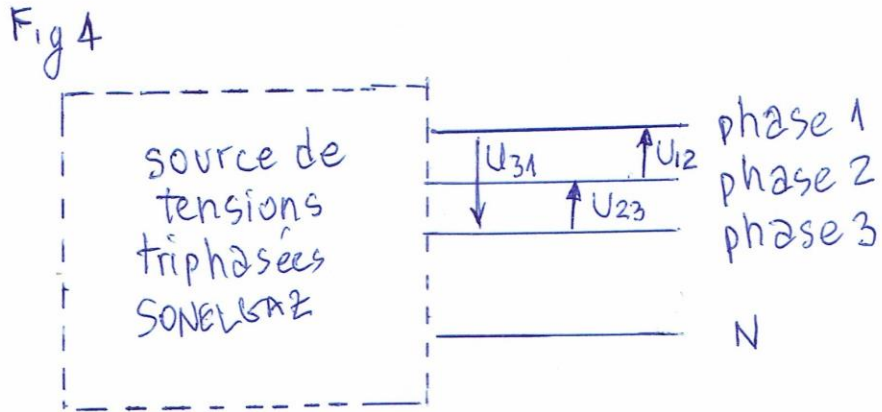 Fig 4
source de
tensions
triphasées
SONELGAZ
U31
U12
U23
phase 1
phase 2
phase 3
N